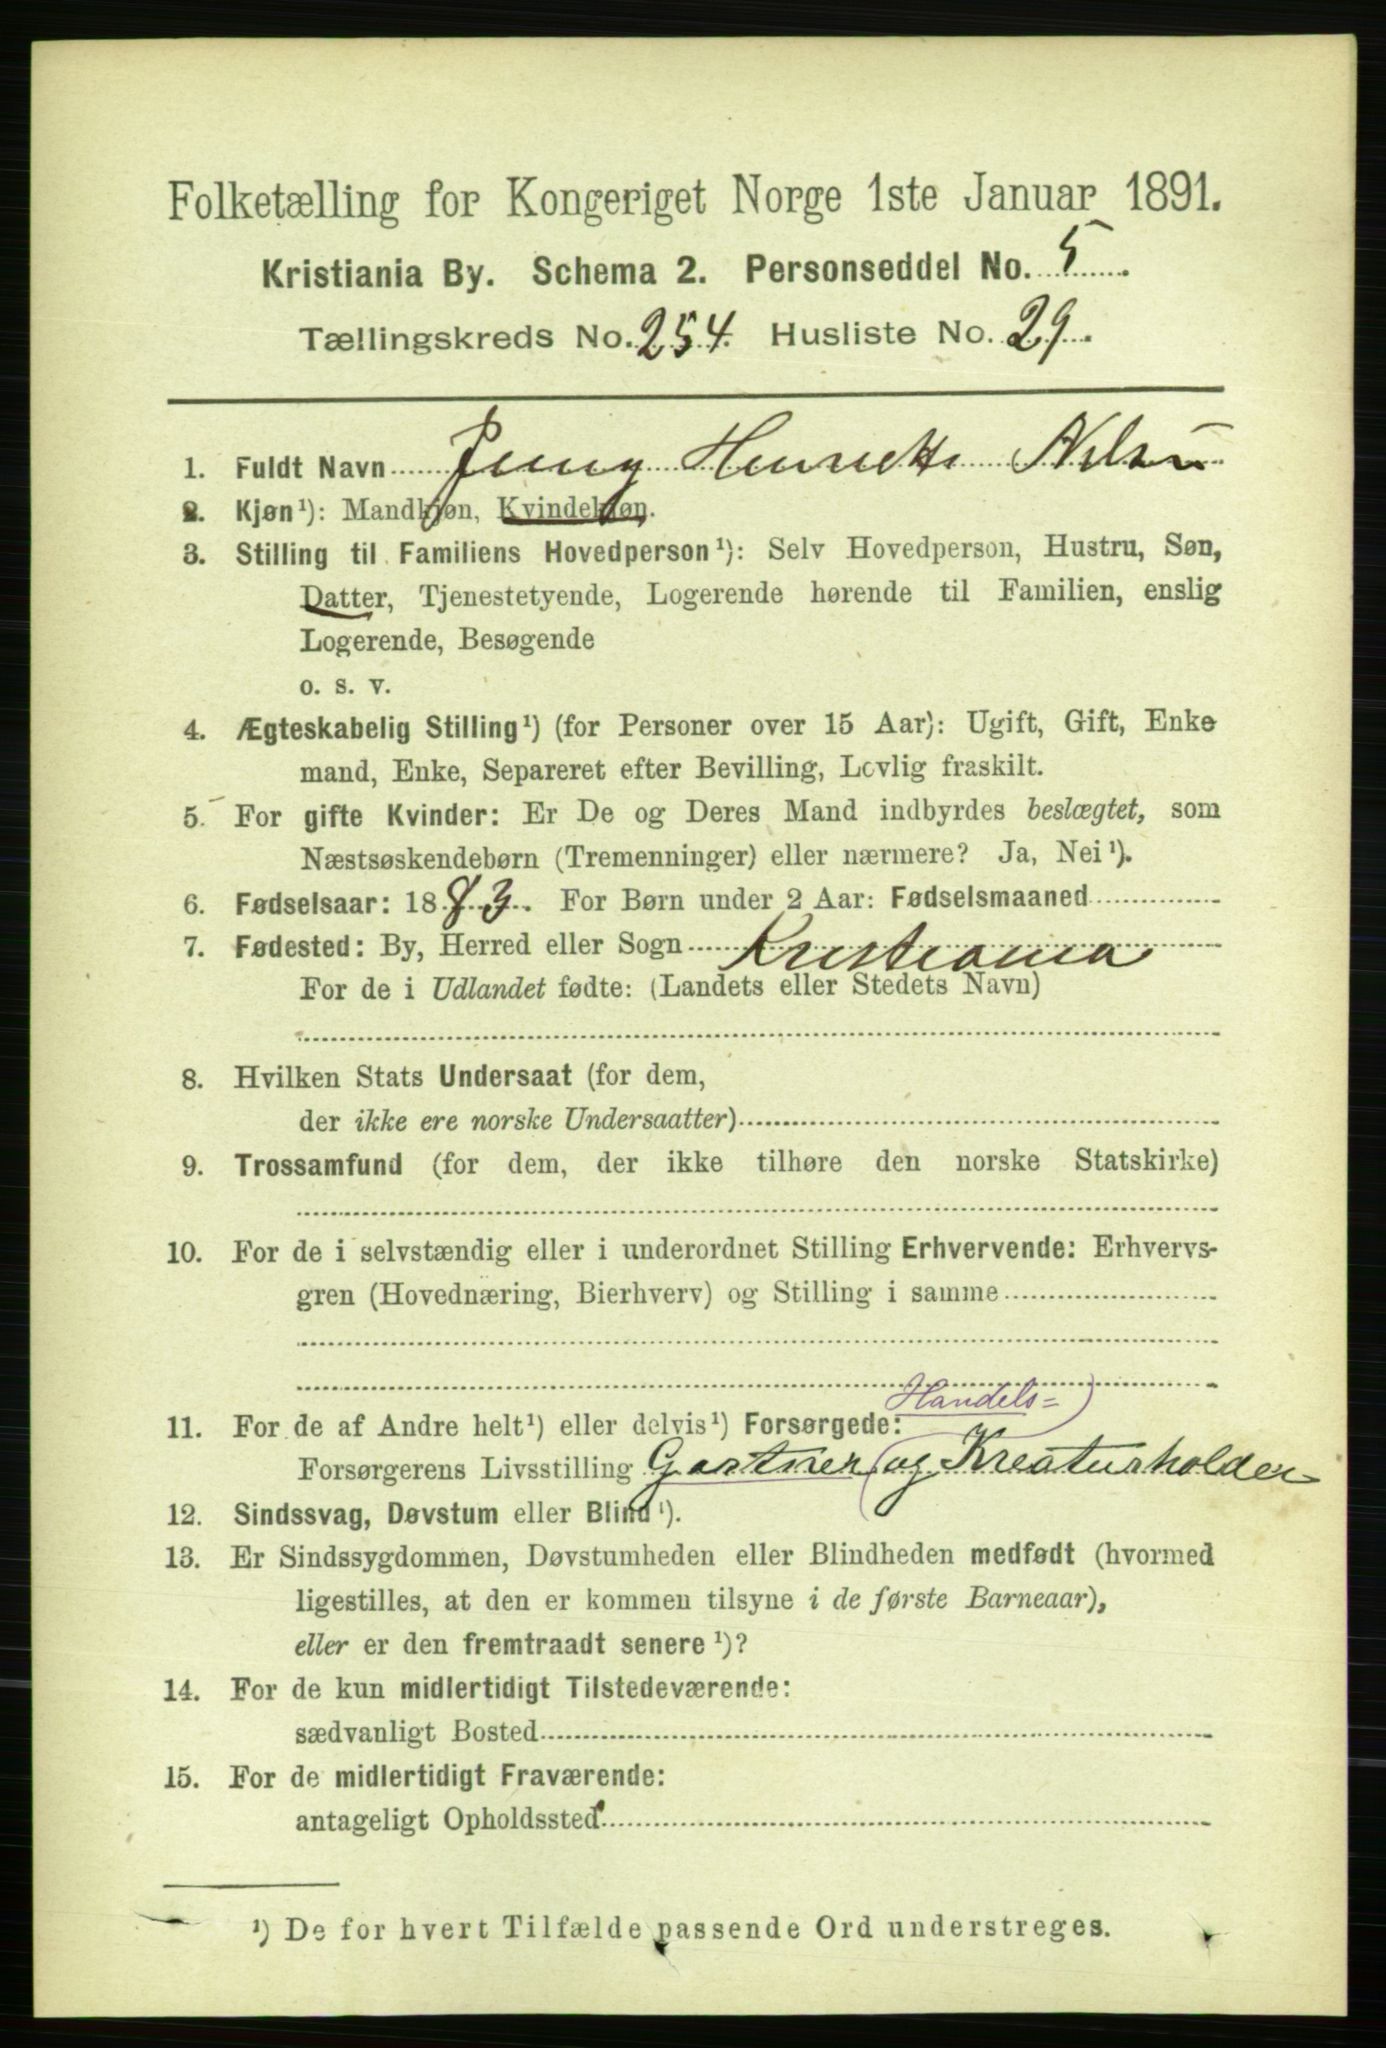 Folketælling for Kongeriget Norge 1ste Januar 1891.
Kristiania By. Schema 2. Personseddel No. 5.
Tællingskreds No. 254. Husliste No. 29.
1. Fuldt Navn Jenny Henriette Nelsen
2. Kjøn¹): Mandkjøn, Kvindekjøn.
3. Stilling til Familiens Hovedperson¹): Selv Hovedperson, Hustru, Søn,
Datter, Tjenestetyende, Logerende hørende til Familien, enslig
Logerende, Besøgende
o. s. v.
4. Ægteskabelig Stilling¹) (for Personer over 15 Aar): Ugift, Gift, Enke
mand, Enke, Separeret efter Bevilling, Lovlig fraskilt.
5. For gifte Kvinder: Er De og Deres Mand indbyrdes beslægtet, som
Næstsøskendebørn (Tremenninger) eller nærmere? Ja, Nei¹).
6. Fødselsaar: 1883. For Børn under 2 Aar: Fødselsmaaned
7. Fødested: By, Herred eller Sogn Kristiania
For de i Udlandet fødte: (Landets eller Stedets Navn)
8. Hvilken Stats Undersaat (for dem,
der ikke ere norske Undersaatter)
9. Trossamfund (for dem, der ikke tilhøre den norske Statskirke)
10. For de i selvstændig eller i underordnet Stilling Erhvervende: Erhvervs-
gren (Hovednæring, Bierhverv) og Stilling i samme
Handels=
11. For de af Andre helt¹) eller delvis¹) Forsørgede:
Forsørgerens Livsstilling Gartner (og Kreaturholder)
12. Sindssvag, Døvstum eller Blind¹).
13. Er Sindssygdommen, Døvstumheden eller Blindheden medfødt (hvormed
ligestilles, at den er kommen tilsyne i de første Barneaar),
eller er den fremtraadt senere¹)?
14. For de kun midlertidigt Tilstedeværende:
sædvanligt Bosted
15. For de midlertidigt Fraværende:
antageligt Opholdssted
¹) De for hvert Tilfælde passende Ord understreges.